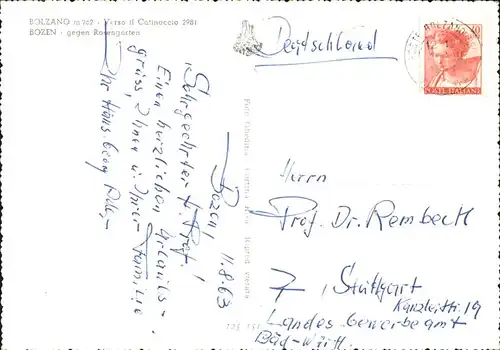 BOLZANO m 262 - Verso il Catinaccio 2981
BOZEN - gegen Rosengarten
Deutschland
POSTE ITALIANE
Bozen, 11.8.63
Sehrgeehrter H. Prof.!
Einen herzlichen Urlaubs-
gruss, Ihnen u. Ihrer Familie
Ihr Hans Georg
Herrn
Prof. Dr. Rembeck
7, Stuttgart
Kanzleistr. 19
Landes Gewerbeamt
Bad-Württ.